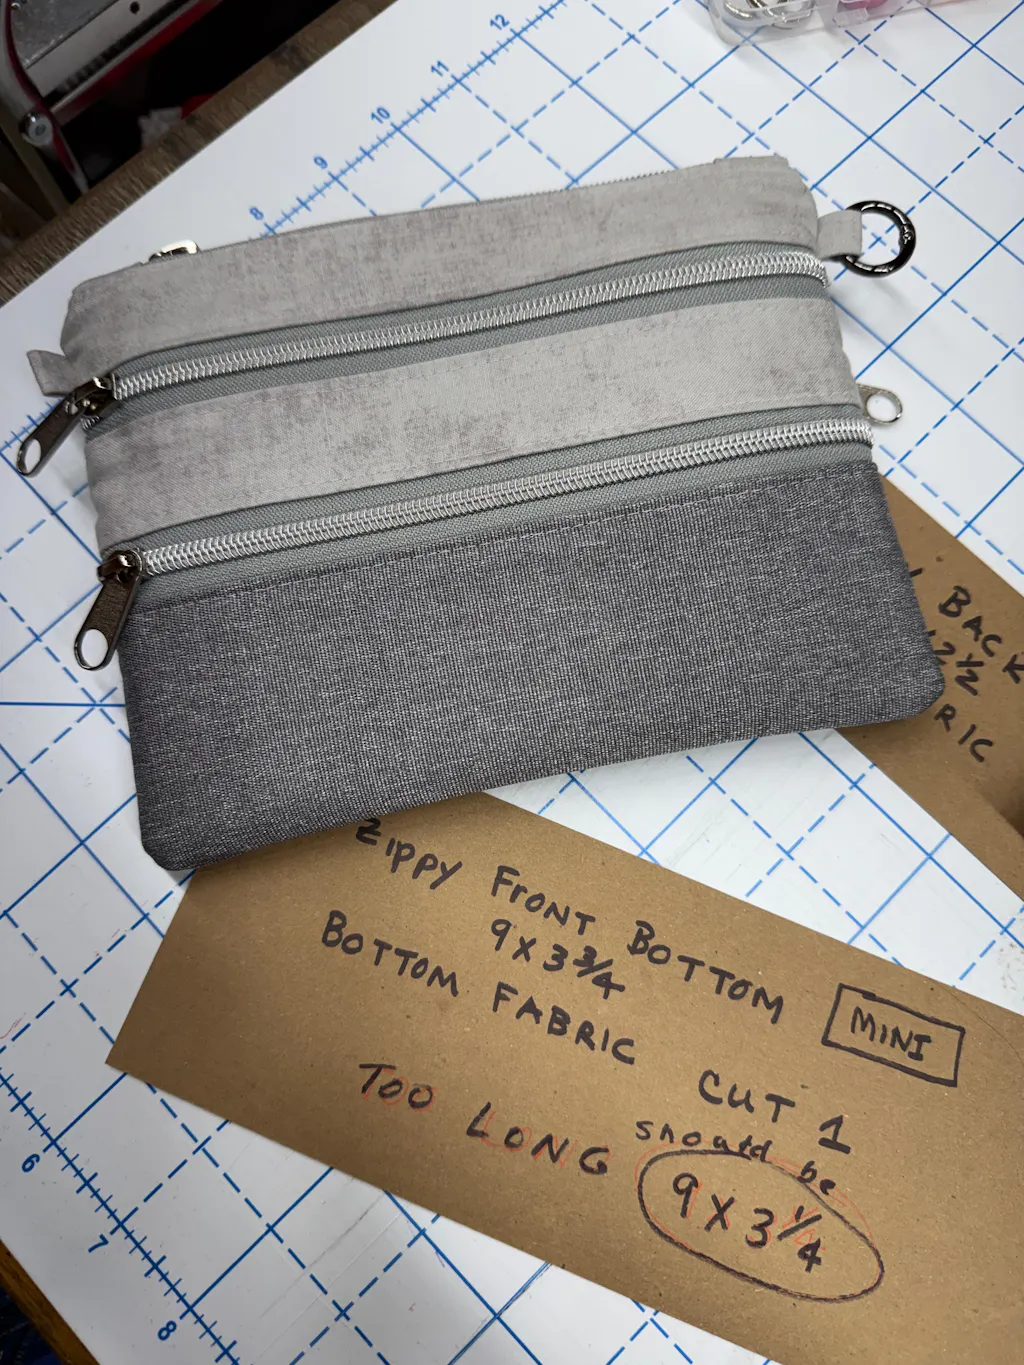 12
11
10
9
8
BACK
2½
RIC
ZIPPY FRONT BOTTOM
9 X 3¾
BOTTOM FABRIC CUT 1
MINI
TOO LONG
should be
9 X 3¼
6
7
8